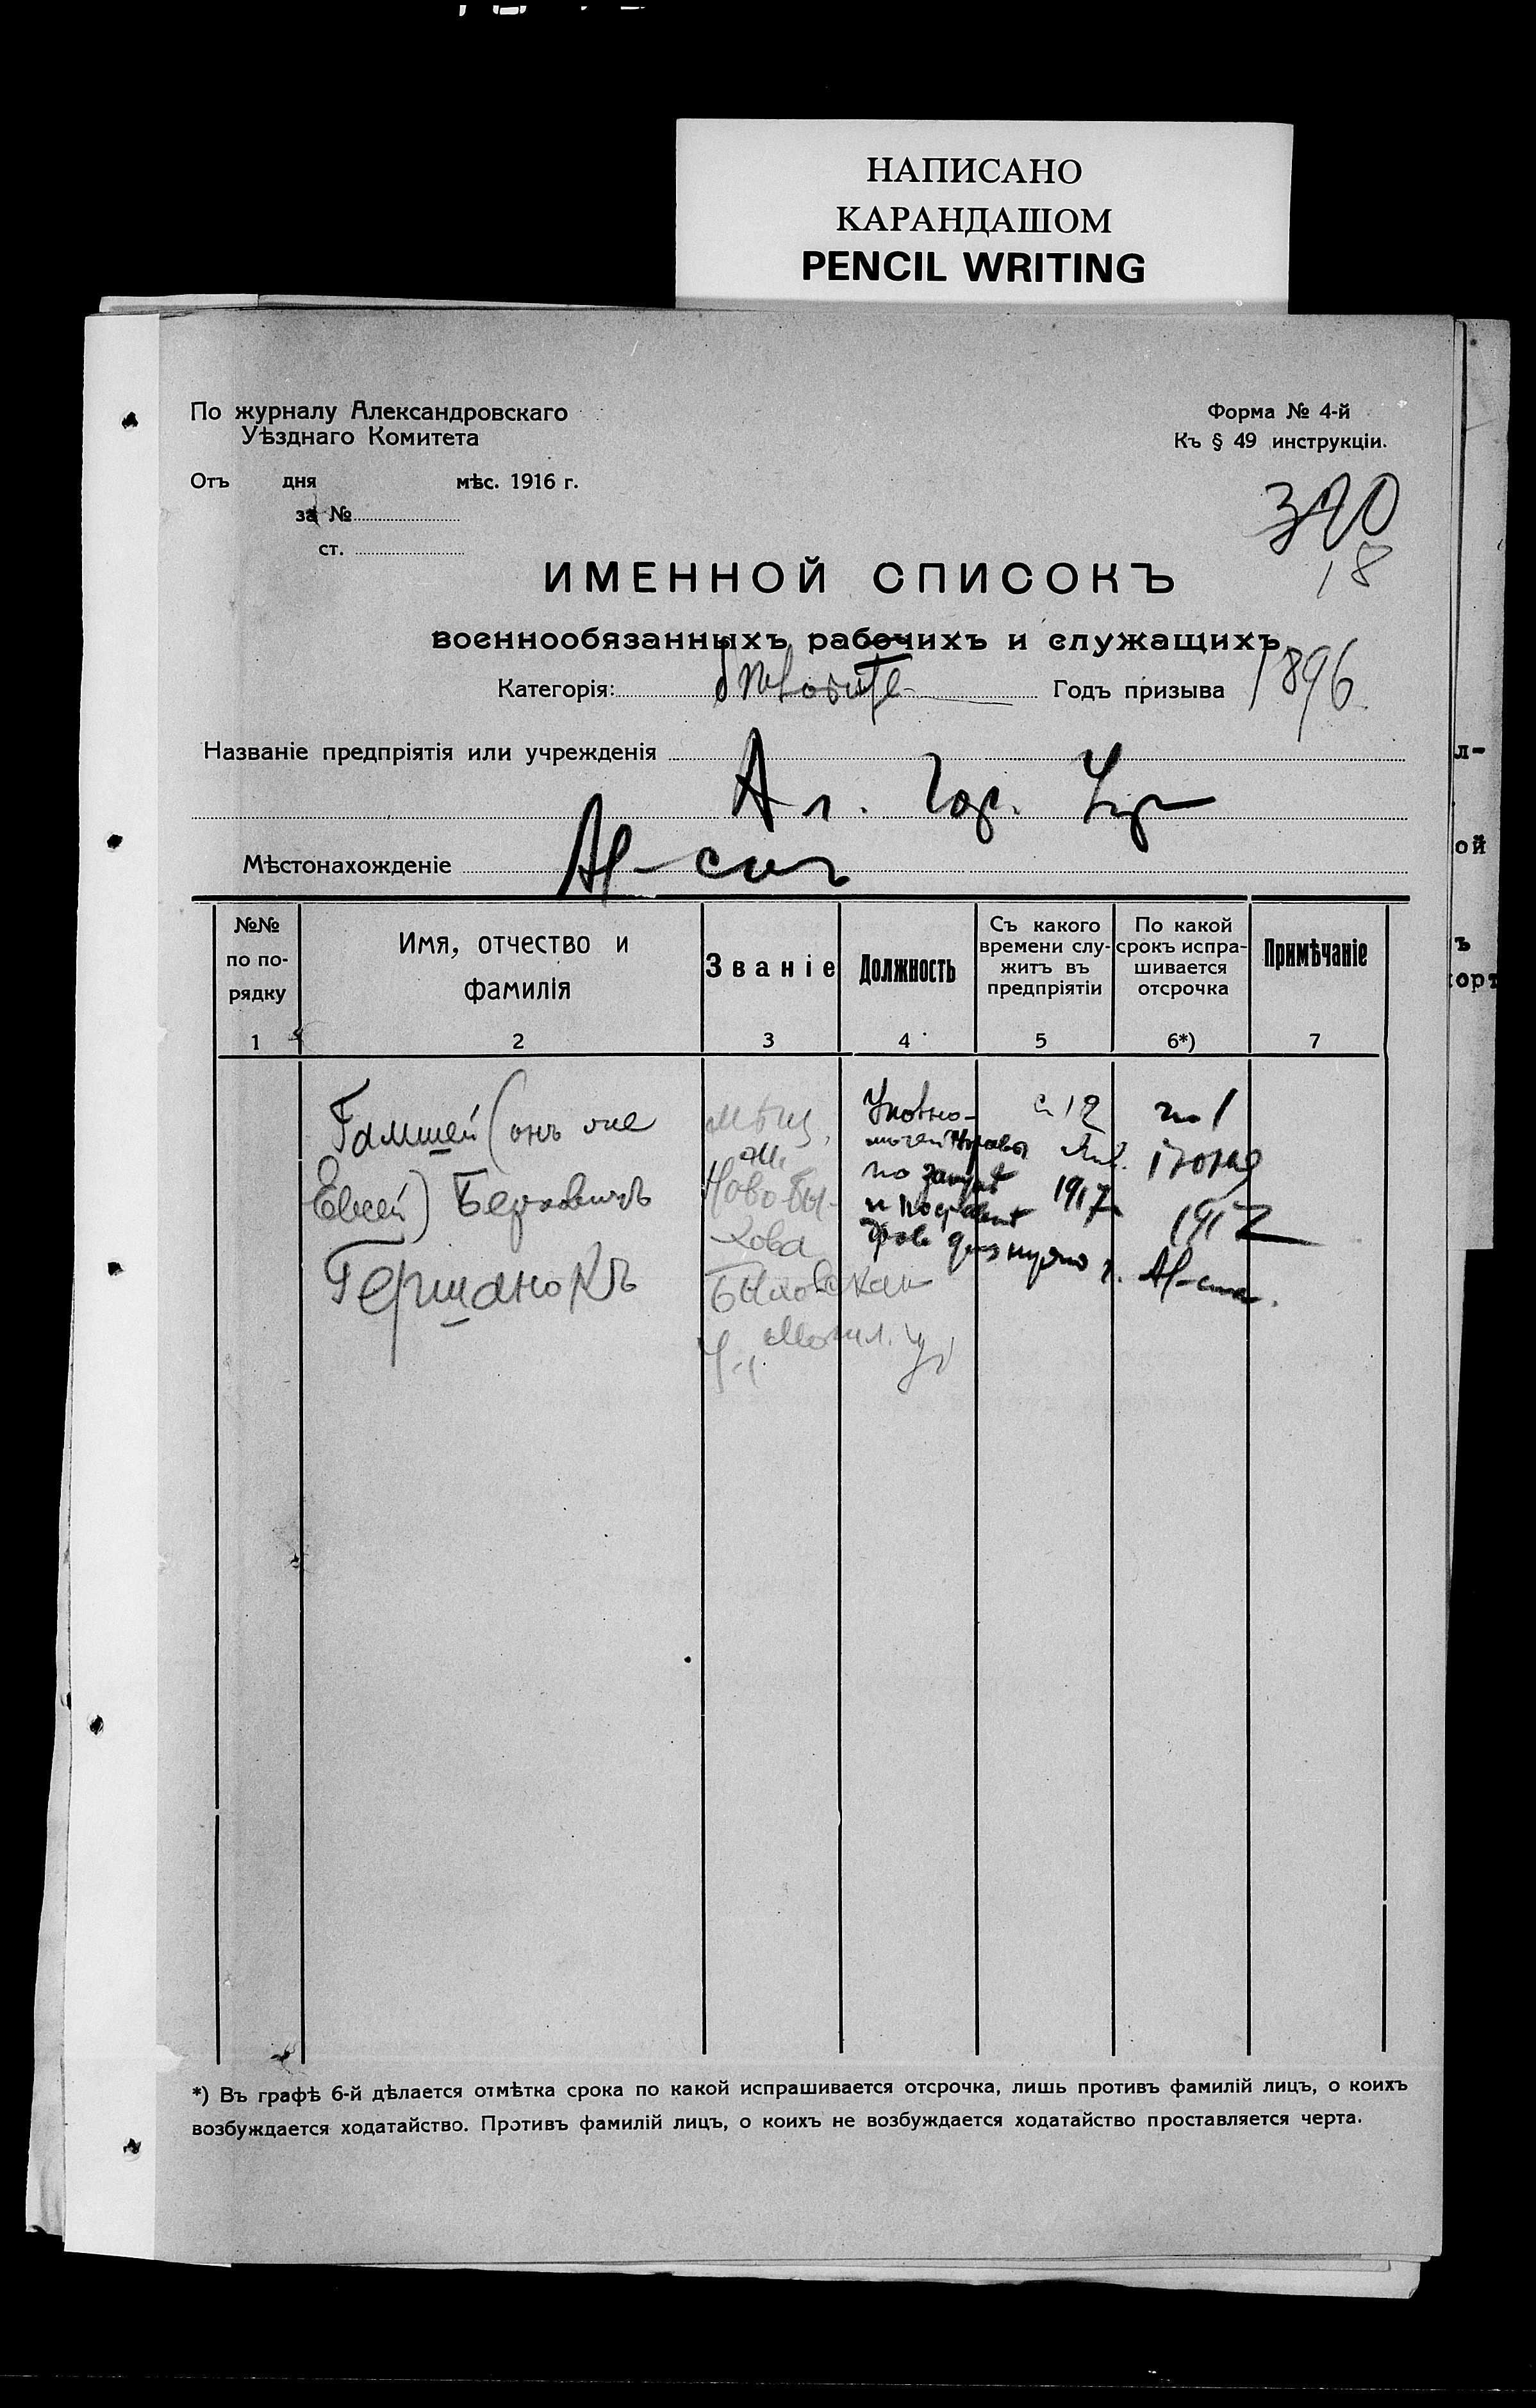 НАПИСАНО
КАРАНДАШОМ
PENCIL WRITING
По журналу Александровскаго
Уѣзднаго Комитета
Отъ дня мѣс. 1916 г.
за №
ст.
Форма № 4-й
Къ § 49 инструкціи.
18
ИМЕННОЙ СПИСОКЪ
военнообязанныхъ рабочихъ и служащихъ
Категорія: Годъ призыва 1896
Названіе предпріятія или учрежденія
Ал. Гор. Упр
Мѣстонахожденіе Ал-скъ
№№ по по-рядку
Имя, отчество и фамилія
Званіе
Должность
Съ какого времени слу-житъ въ предпріятіи
По какой срокъ испра-шивается отсрочка
Примѣчаніе
1 2 3 4 5 6*) 7
Гамшей (онъ же
Евсей) Берковичъ
Гершанокъ
мѣщ.
Ново-Бы-
хова
Быховскаго
у., Могил. губ
Уполно-
моченный
по закупкѣ
и
дровъ для нуждъ г. Ал-ска.
с 12
Янв.
1917
по 1
Іюня
1917
*) Въ графѣ 6-й дѣлается отмѣтка срока по какой испрашивается отсрочка, лишь противъ фамилій лицъ, о коихъ
возбуждается ходатайство. Противъ фамилій лицъ, о коихъ не возбуждается ходатайство проставляется черта.
л-
ой
ъ